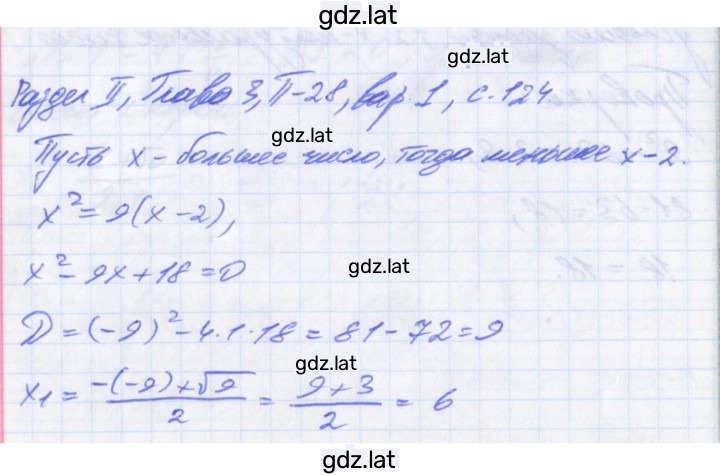 gdz.lat
Раздел II, Глава 3, П-28, вар. 1, с. 124
gdz.lat
Пусть x - большее число, тогда меньшее x-2.
x² = 9(x-2),
gdz.lat
x² - 9x + 18 = 0
D = (-9)² - 4·1·18 = 81 - 72 = 9
gdz.lat
x₁ = (-(-9)+√9)/2 = (9+3)/2 = 6
gdz.lat